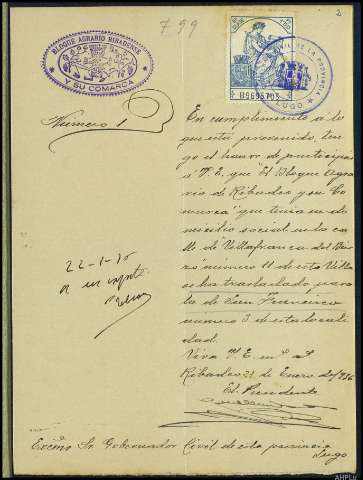 799
2
BLOQUE AGRARIO RIBADENSE
Y SU COMARCA
CIVIL DE LA PROVINCIA
LUGO
Número 1
En cumplimiento a lo
que está prevenido, ten-
go el honor de participar
a V.E. que El Bloque Agra-
rio de Ribadeo y su Co-
marca" que tenia su do-
micilio social en la ca-
lle de Villafranca del Bier-
zo número 11 de esta Villa
se ha trasladado para
la de San Francisco
número 3 de esta locali-
dad.
Viva V.E. m.s a.s
Ribadeo 21 de Enero de 1936
El Presidente
22-1-36
Excmo Sr Gobernador Civil de esta provincia
Lugo
AHPLU